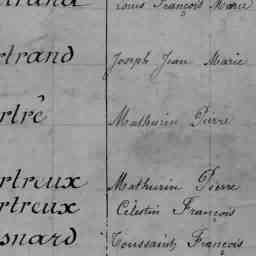 Louis François Marie
rtrand Joseph Jean Marie
rtrê Mathurin Pierre
rtreux Mathurin Pierre
rtreux Célestin François
snard Toussaint François